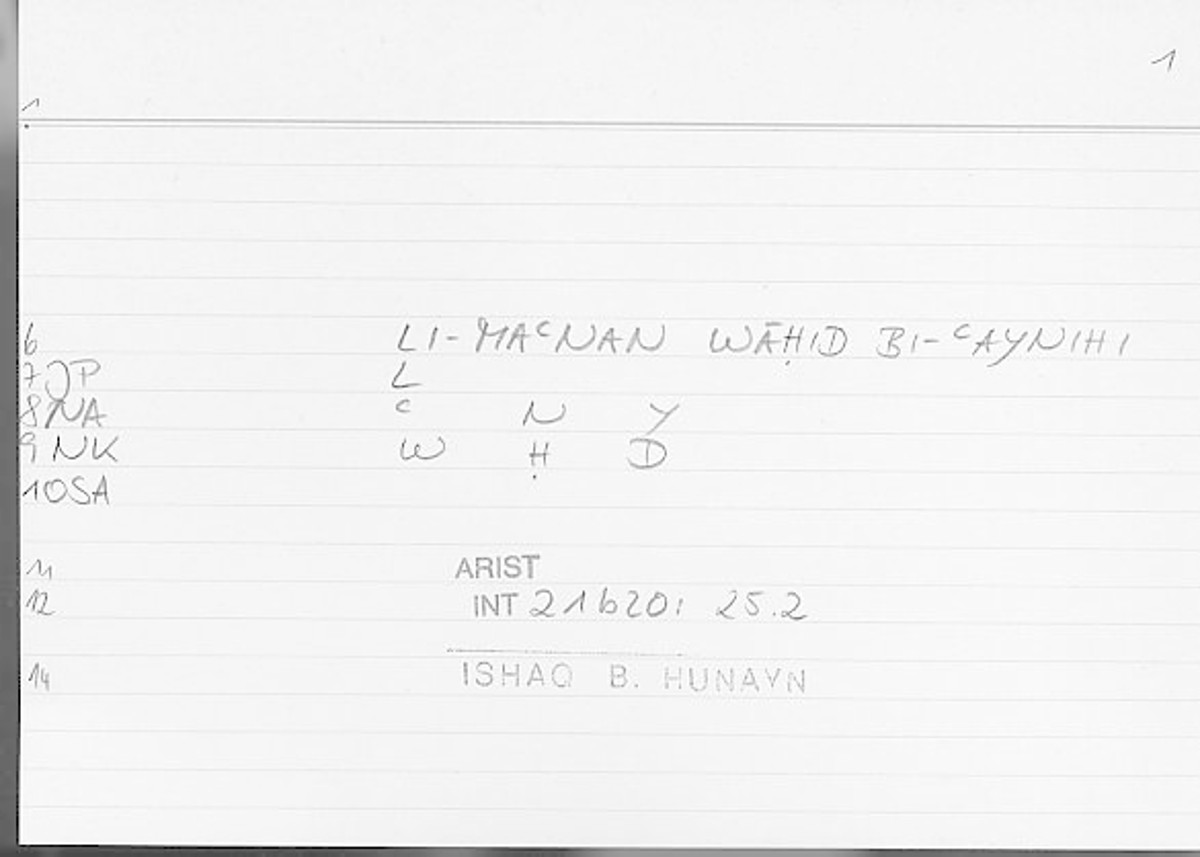 1
1
6 LI-MAᶜNAN WĀḤID BI-ᶜAYNIHI
7 JP L
8 NA ᶜ N Y
9 NK W Ḥ D
10 SA
11 ARIST
12 INT 21b20: 25.2
14 ISHAQ B. HUNAYN